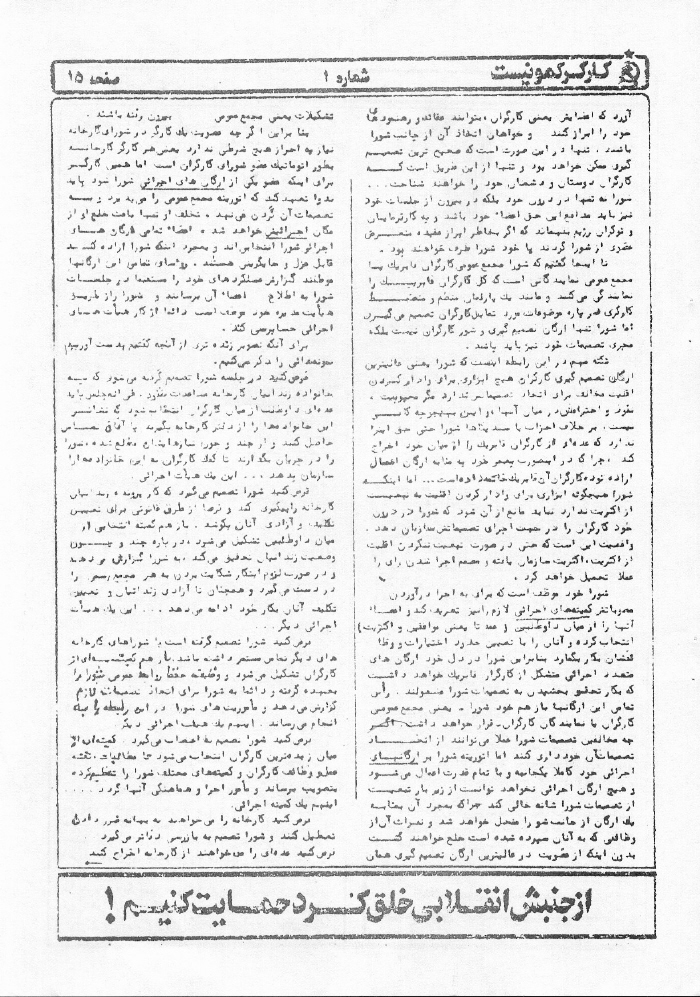 کارگر کمونیست
شماره ۱
صفحه ۱۵
آورد که اعضایش یعنی کارگران، بتوانند عقاید و رهنمودهای
خود را ابراز کنند و خواهان اتخاذ آن از جانب شورا
باشند. تنها در این صورت است که صحیح ترین تصمیم
گیری ممکن خواهد بود و تنها از این طریق است که
کارگران دوستان و دشمنان خود را خواهند شناخت...
شورا نه تنها در درون خود بلکه در بیرون از جلسات خود
نیز باید مدافع این حق اعضاء خود باشد و به کارفرمایان
و نوکران رژیم بفهماند که اگر بخاطر ابراز عقیده متعرض
عضوی از شورا گردند با خود شورا طرف خواهند بود.
تا اینجا گفتیم که شورا مجمع عمومی کارگران فابریک یا
مجمع عمومی نمایندگانی است که کل کارگران فابریک را
نمایندگی می‌کنند و مانند یک پارلمان منظم و منضبط
کارگری در باره موضوعات مورد کارگران تصمیم می‌گیرد.
اما شورا تنها ارگان تصمیم گیری و شور کارگران نیست بلکه
مجری تصمیمات خود نیز باید باشد.
نکته مهم در این رابطه اینست که شورا یعنی عالیترین
ارگان تصمیم گیری کارگران هیچ ابزاری برای وادار کردن
اقلیت مخالف برای اتخاذ تصمیماتش ندارد مگر محبوبیت،
نفوذ و احترامش در میان آنها و این بهیچوجه کم
نیست. بر خلاف احزاب یا سندیکاها شورا حتی حق اینرا
ندارد که عده‌ای از کارگران فابریک را از میان خود اخراج
کند، چرا که در اینصورت بمعنی خود به مثابه ارگان اعمال
اراده توده کارگران آن فابریک خاتمه داده است... اما اینکه
شورا هیچگونه ابزاری برای وادار کردن اقلیت به تبعیت
از اکثریت ندارد نباید مانع از آن شود که شورا در درون
خود کارگران را در جهت اجرای تصمیماتش سازمان دهد.
واقعیت این است که حتی در صورت تبعیت نکردن اقلیت
از اکثریت، اکثریت سازمان یافته و مصمم اجرا شدن رای را
عملا تحمیل خواهد کرد.
شورا خود موظف است که برای به اجرا درآوردن
مصوباتش کمیته‌های اجرائی لازم را نیز تعریف کند و اعضاء
آنها را از میان داوطلبین (عمدتا یعنی موافقین و اکثریت)
انتخاب کرده و آنان را با تعیین حدود اختیارات و وظا
ئفشان بکار بگمارد بنابراین شورا در دل خود ارگان های
متعدد اجرائی متشکل از کارگران فابریک خواهد داشت
که بکار تحقق بخشیدن به تصمیمات شورا مشغولند. رأس
تمامی این ارگانها باز هم خود شورا، یعنی مجمع عمومی
کارگران یا نمایندگان کارگران، قرار خواهد داشت. اگر
چه مخالفین تصمیمات شورا عملا می‌توانند از اتخاذ
تصمیمات آن خودداری کنند اما اتوریته شورا بر ارگانهای
اجرائی خود کاملا یکجانبه و با تمام قدرت اعمال می‌شود
و هیچ ارگان اجرائی نخواهد توانست از زیر بار تبعیت
از تصمیمات شورا شانه خالی کند چرا که بمجرد آن بمثابه
یک ارگان از جانب شورا منحل خواهد شد و نفرات آن از
وظائفی که به آنان سپرده شده است خلع خواهند گشت
بدون اینکه از عضویت در عالیترین ارگان تصمیم گیری همان
تشکیلات یعنی مجمع عمومی بیرون رفته باشند.
بنا براین اگر چه عضویت یک کارگر در شورای کارخانه
نیاز به احراز هیچ شرطی ندارد یعنی هر کارگر کارخانه
بطور اتوماتیک عضو شورای کارگران است اما همین کارگر
برای اینکه عضو یکی از ارگان های اجرائی شورا شود باید
بدوا تعهد کند که اتوریته مجمع عمومی را می‌پذیرد و به
تصمیمات آن گردن می‌نهد. تخلف او تنها باعث خلع او از
مکان اجرائیش خواهد شد. اعضاء تمامی ارگان های
اجرائی شورا انتخابی‌اند و بمجرد اینکه شورا اراده کند
قابل عزل و جایگزینی هستند. روسای تمامی این ارگانها
موظفند گزارش عملکردهای خود را مستقیما در جلسات
شورا به اطلاع اعضاء آن برسانند و شورا از طریق
هیأت مدیره خود موظف است دائما از کار هیأت های
اجرائی حسابرسی کند.
برای آنکه تصویر زنده تری از آنچه گفتیم بدست آوریم
نمونه‌هائی را ذکر می‌کنیم.
فرض کنید در جلسه شورا تصمیم گرفته می‌شود که به
خانواده زندانیان کارخانه مساعدت بشود. فی المجلس باید
عده‌ای داوطلب از میان کارگران انتخاب شود که نشانی
این خانواده‌ها را از دفتر کارخانه بگیرند یا آنان تماس
حاصل کنند و از چند و چون نیازهایشان مطلع شده، شورا
را در جریان بگذارند تا کمک کارگران به این خانواده‌ها را
سازمان بدهد... این یک هیأت اجرائی.
فرض کنید شورا تصمیم می‌گیرد که کار پرونده زندانیان
کارخانه را پیگیری کند و فرضا از طرق قانونی برای تعیین
تکلیف و آزادی آنان بکوشد. باز هم کمیته انتخابی از
میان داوطلبین تشکیل می‌شود، درباره چند و چون
وضعیت زندانیان تحقیق می‌کند، به شورا گزارش می‌دهد
و در صورت لزوم ابتکار شکایت بردن به هر مجمع رسمی را
در دست می‌گیرد و همچنان تا آزادی زندانیان و تعیین
تکلیف آنان بکار خود ادامه می‌دهد... این یک هیأت
اجرائی دیگر...
فرض کنید شورا تصمیم گرفته است با شوراهای کارخانه
های دیگر تماس مستمر داشته باشد. باز هم کمیته‌ای از
کارگران تشکیل می‌شود و وظیفه حفظ روابط عمومی شورا را
بعهده گرفته و دائما به شورا برای اتخاذ تصمیمات لازم
گزارش می‌دهد و مأموریت های شورا در این رابطه را به
انجام می‌رساند. اینهم یک هیأت اجرائی دیگر.
فرض کنید شورا تصمیم به اعتصاب می‌گیرد. کمیته‌ای از
میان زبده‌ترین کارگران انتخاب می‌شود تا مطالبات، نقشه
عمل، وظائف کارگران و کمیته‌های مختلف شورا را تنظیم کرده
بتصویب برساند و مأمور اجرا و هماهنگی آنها گردد...
اینهم یک کمیته اجرائی.
فرض کنید کارخانه را می‌خواهند به بهانه ضرر دادن
تعطیل کنند و شورا تصمیم به بازرسی دفاتر می‌گیرد.
فرض کنید عده‌ای را می‌خواهند از کارخانه اخراج کنند
از جنبش انقلابی خلق کرد حمایت کنیم!